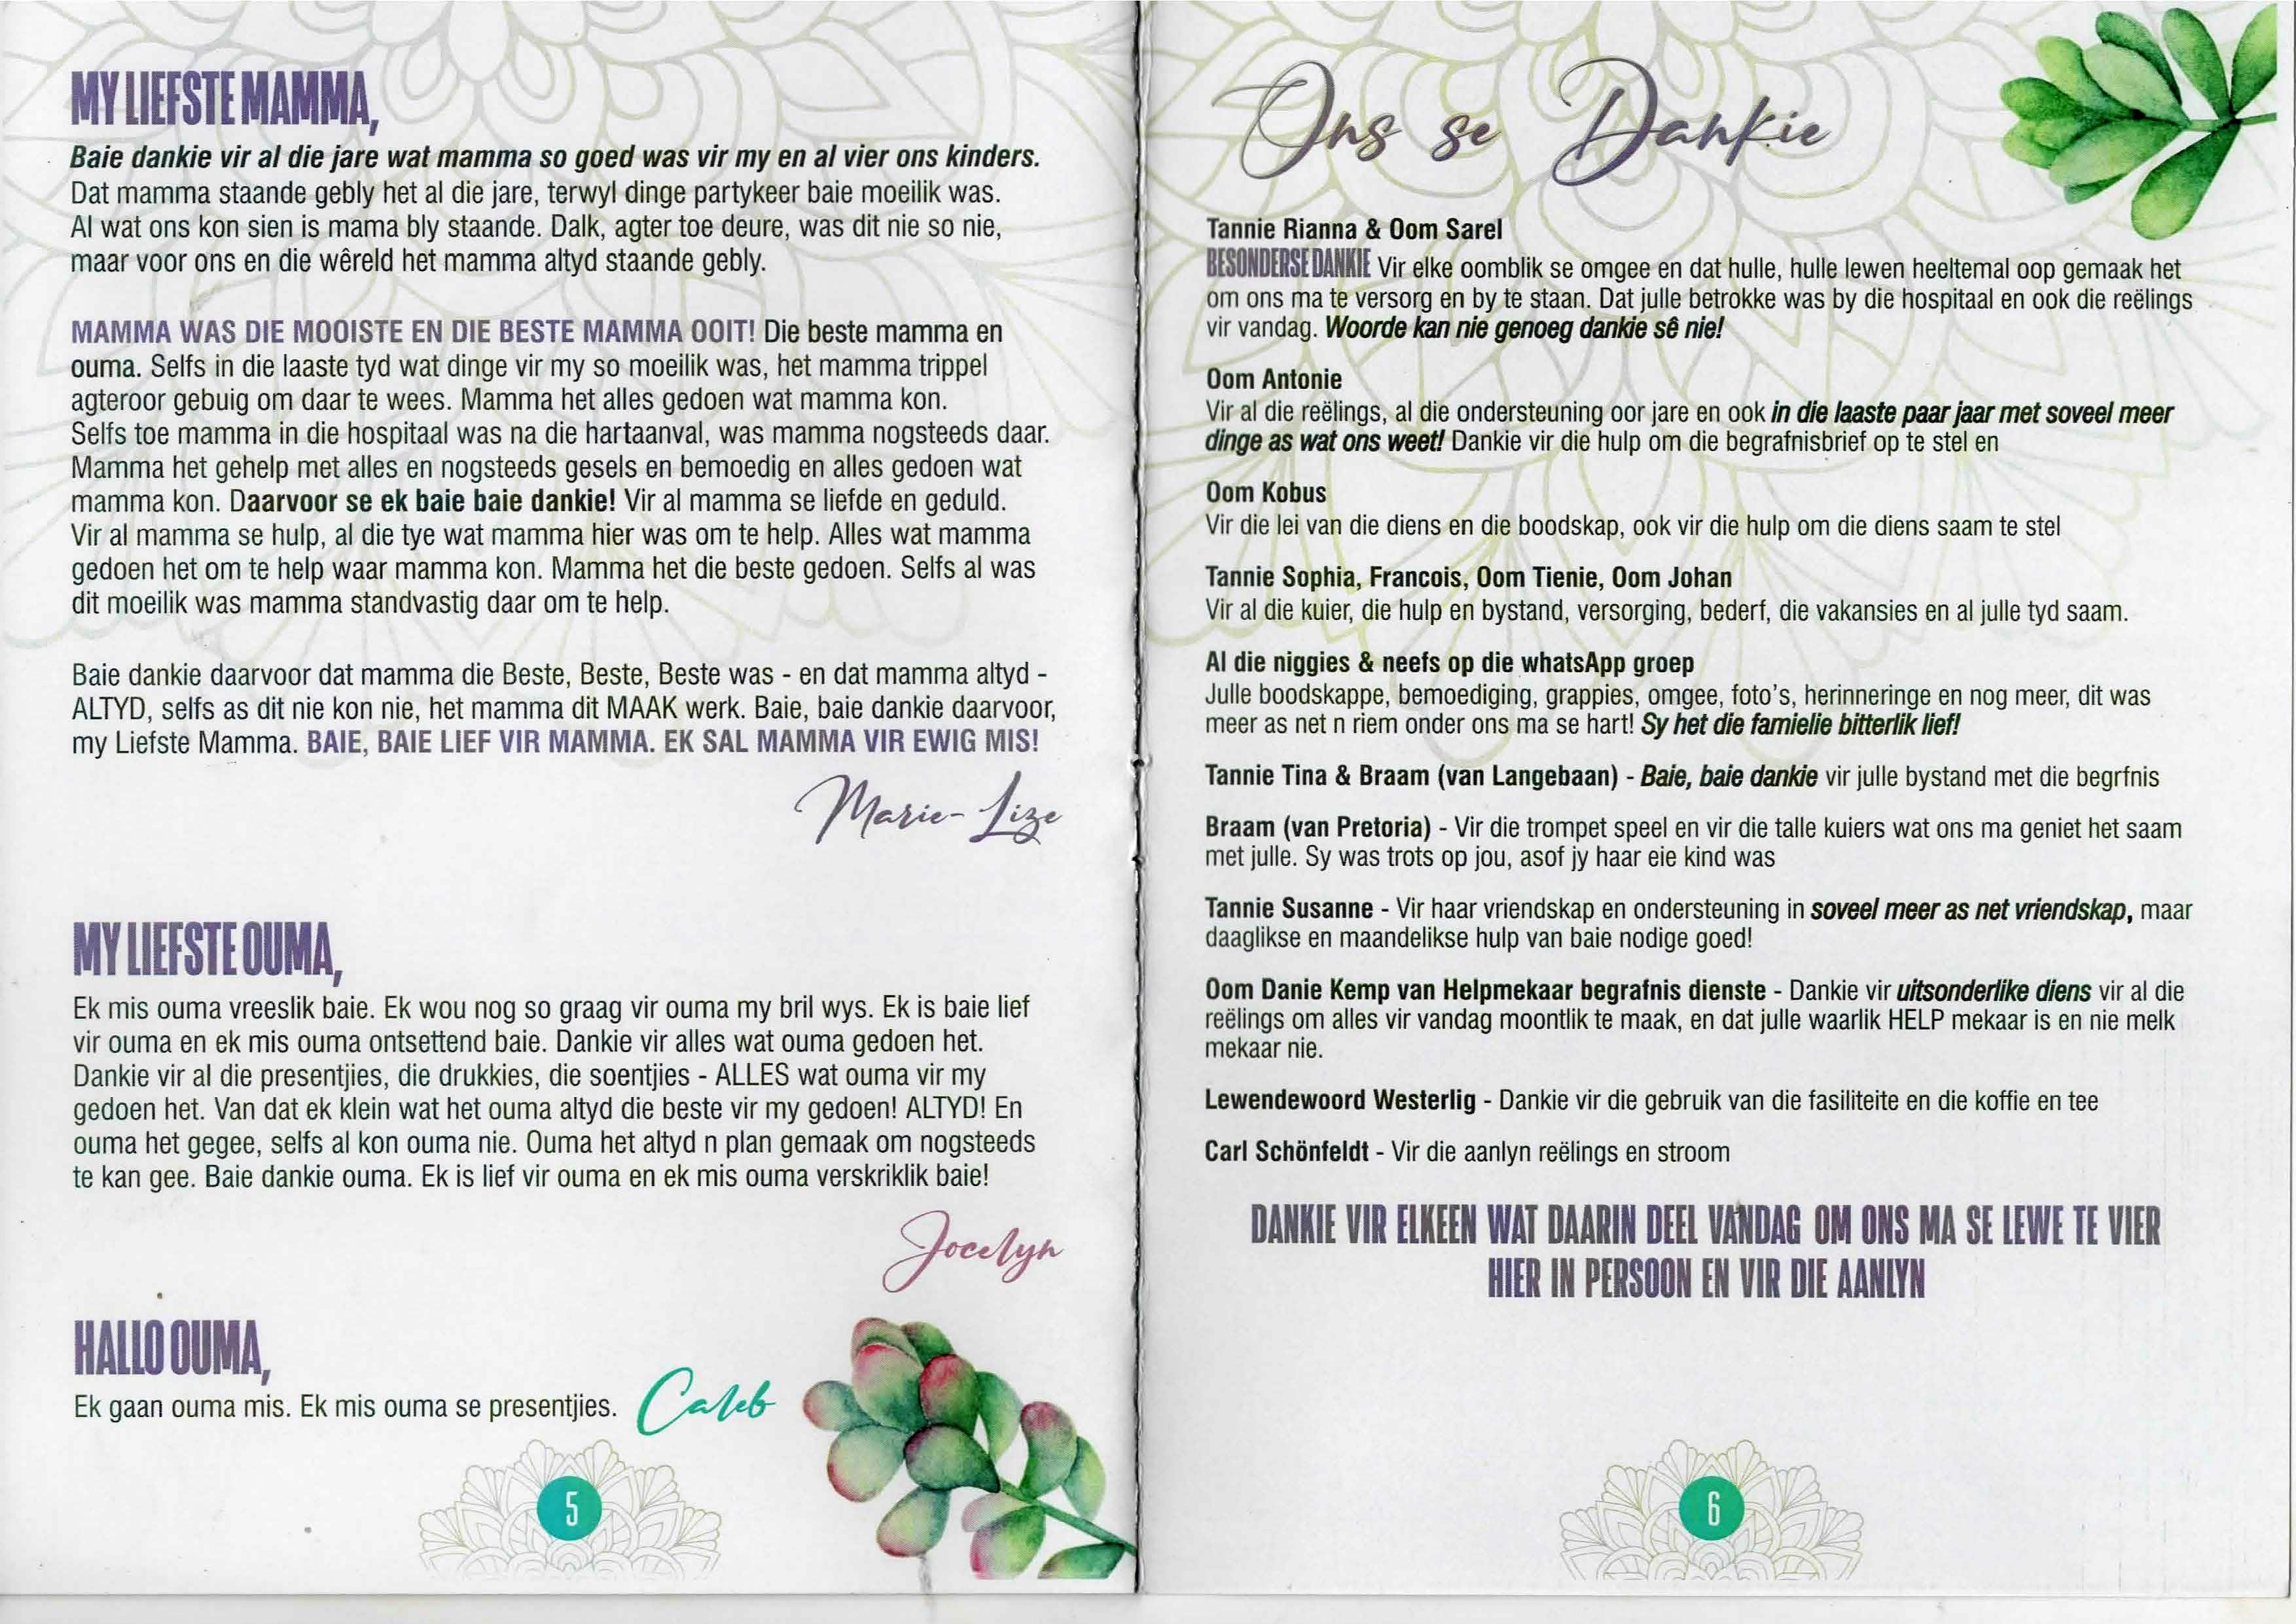 MY LIEFSTE MAMMA,
Baie dankie vir al die jare wat mamma so goed was vir my en al vier ons kinders.
Dat mamma staande gebly het al die jare, terwyl dinge partykeer baie moeilik was.
Al wat ons kon sien is mama bly staande. Dalk, agter toe deure, was dit nie so nie,
maar voor ons en die wêreld het mamma altyd staande gebly.
MAMMA WAS DIE MOOISTE EN DIE BESTE MAMMA OOIT! Die beste mamma en
ouma. Selfs in die laaste tyd wat dinge vir my so moeilik was, het mamma trippel
agteroor gebuig om daar te wees. Mamma het alles gedoen wat mamma kon.
Selfs toe mamma in die hospitaal was na die hartaanval, was mamma nogsteeds daar.
Mamma het gehelp met alles en nogsteeds gesels en bemoedig en alles gedoen wat
mamma kon. Daarvoor se ek baie baie dankie! Vir al mamma se liefde en geduld.
Vir al mamma se hulp, al die tye wat mamma hier was om te help. Alles wat mamma
gedoen het om te help waar mamma kon. Mamma het die beste gedoen. Selfs al was
dit moeilik was mamma standvastig daar om te help.
Baie dankie daarvoor dat mamma die Beste, Beste, Beste was - en dat mamma altyd -
ALTYD, selfs as dit nie kon nie, het mamma dit MAAK werk. Baie, baie dankie daarvoor,
my Liefste Mamma. BAIE, BAIE LIEF VIR MAMMA. EK SAL MAMMA VIR EWIG MIS!
Marie-Lize
MY LIEFSTE OUMA,
Ek mis ouma vreeslik baie. Ek wou nog so graag vir ouma my bril wys. Ek is baie lief
vir ouma en ek mis ouma ontsettend baie. Dankie vir alles wat ouma gedoen het.
Dankie vir al die presentjies, die drukkies, die soentjies - ALLES wat ouma vir my
gedoen het. Van dat ek klein wat het ouma altyd die beste vir my gedoen! ALTYD! En
ouma het gegee, selfs al kon ouma nie. Ouma het altyd n plan gemaak om nogsteeds
te kan gee. Baie dankie ouma. Ek is lief vir ouma en ek mis ouma verskriklik baie!
Jocelyn
HALLO OUMA,
Ek gaan ouma mis. Ek mis ouma se presentjies. Caleb
5
Ons se Dankie
Tannie Rianna & Oom Sarel
BESONDERSE DANKIE Vir elke oomblik se omgee en dat hulle, hulle lewen heeltemal oop gemaak het
om ons ma te versorg en by te staan. Dat julle betrokke was by die hospitaal en ook die reëlings
vir vandag. Woorde kan nie genoeg dankie sê nie!
Oom Antonie
Vir al die reëlings, al die ondersteuning oor jare en ook in die laaste paar jaar met soveel meer
dinge as wat ons weet! Dankie vir die hulp om die begrafnisbrief op te stel en
Oom Kobus
Vir die lei van die diens en die boodskap, ook vir die hulp om die diens saam te stel
Tannie Sophia, Francois, Oom Tienie, Oom Johan
Vir al die kuier, die hulp en bystand, versorging, bederf, die vakansies en al julle tyd saam.
Al die niggies & neefs op die whatsApp groep
Julle boodskappe, bemoediging, grappies, omgee, foto's, herinneringe en nog meer, dit was
meer as net n riem onder ons ma se hart! Sy het die famielie bitterlik lief!
Tannie Tina & Braam (van Langebaan) - Baie, baie dankie vir julle bystand met die begrfnis
Braam (van Pretoria) - Vir die trompet speel en vir die talle kuiers wat ons ma geniet het saam
met julle. Sy was trots op jou, asof jy haar eie kind was
Tannie Susanne - Vir haar vriendskap en ondersteuning in soveel meer as net vriendskap, maar
daaglikse en maandelikse hulp van baie nodige goed!
Oom Danie Kemp van Helpmekaar begrafnis dienste - Dankie vir uitsonderlike diens vir al die
reëlings om alles vir vandag moontlik te maak, en dat julle waarlik HELP mekaar is en nie melk
mekaar nie.
Lewendewoord Westerlig - Dankie vir die gebruik van die fasiliteite en die koffie en tee
Carl Schönfeldt - Vir die aanlyn reëlings en stroom
DANKIE VIR ELKEEN WAT DAARIN DEEL VANDAG OM ONS MA SE LEWE TE VIER
HIER IN PERSOON EN VIR DIE AANLYN
6